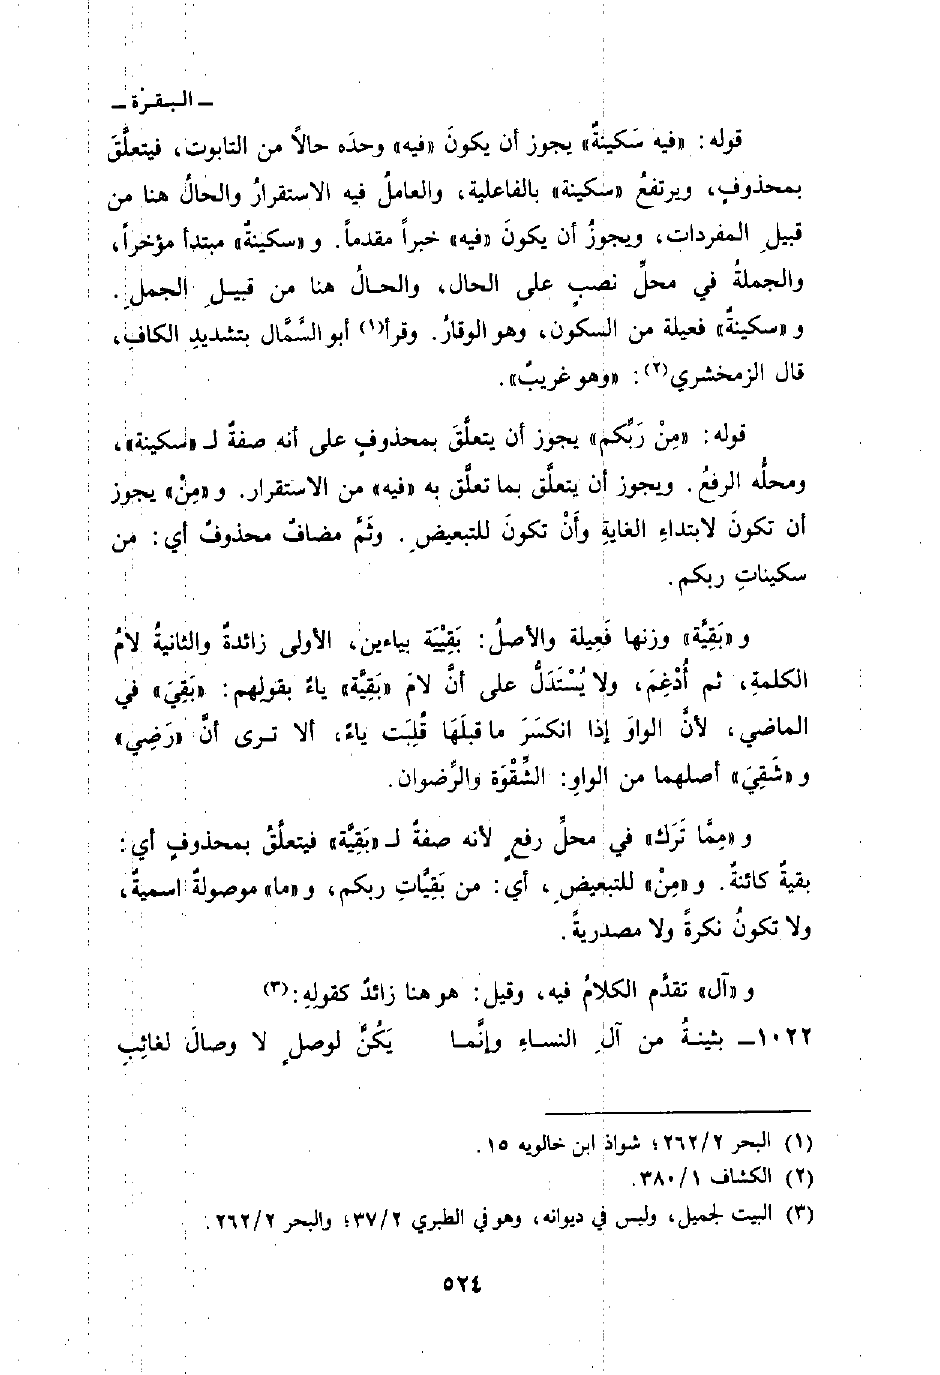 ـ البقرة ـ
قوله: «فيه سَكينةٌ» يجوز أن يكونَ «فيه» وحدَه حالاً من التابوت، فيتعلَّقَ
بمحذوفٍ، ويرتفعُ «سكينة» بالفاعلية، والعاملُ فيه الاستقرارُ والحالُ هنا من
قبيلِ المفردات، ويجوزُ أن يكونَ «فيه» خبراً مقدماً. و «سكينةٌ» مبتدأ مؤخراً،
والجملةُ في محلِّ نصبٍ على الحال، والحالُ هنا من قبيلِ الجملِ.
و «سكينةٌ» فعيلة من السكون، وهو الوقارُ. وقرأ(١) أبو السَّمَّال بتشديدِ الكافِ،
قال الزمخشري(٢): «وهو غريبٌ».
قوله: «مِنْ رَبِّكم» يجوز أن يتعلَّقَ بمحذوفٍ على أنه صفةٌ لـ «سكينة»،
ومحلُّه الرفعُ. ويجوز أن يتعلَّق بما تعلَّق به «فيه» من الاستقرار. و «مِنْ» يجوز
أن تكونَ لابتداءِ الغايةِ وأَنْ تكونَ للتبعيضِ. وثَمَّ مضافٌ محذوفٌ أي: من
سكيناتِ ربكم.
و «بَقِيَّة» وزنها فَعِيلة والأصلُ: بَقِيْيَة بياءين، الأولى زائدةٌ والثانيةُ لامُ
الكلمةِ، ثم أُدْغِمَ، ولا يُسْتَدَلُّ على أنَّ لامَ «بَقِيَّة» ياءٌ بقولِهم: «بَقِيَ» في
الماضي، لأنَّ الواوَ إذا انكسَرَ ما قبلَهَا قُلِبَت ياءً، ألا ترى أنَّ «رَضِي»
و «شَقِيَ» أصلهما من الواوِ: الشِّقْوَة والرِّضوان.
و «مِمَّا تَرَك» في محلِّ رفعٍ لأنه صفةٌ لـ «بَقِيَّة» فيتعلَّقُ بمحذوفٍ أي:
بقيةٌ كائنةٌ. و «مِنْ» للتبعيضِ، أي: من بَقِيَّاتِ ربكم، و «ما» موصولةٌ اسميةٌ،
ولا تكونُ نكرةً ولا مصدريةً.
و «آل» تقدَّم الكلامُ فيه، وقيل: هو هنا زائدٌ كقولِهِ:(٣)
١٠٢٢ـ بثينةُ من آلِ النساءِ وإنَّما يَكُنَّ لوصلٍ لا وصالَ لغائِبِ
(١) البحر ٢/٢٦٢؛ شواذ ابن خالويه ١٥.
(٢) الكشاف ١/٣٨٠.
(٣) البيت لجميل، وليس في ديوانه، وهو في الطبري ٢/٣٧؛ والبحر ٢/٢٦٢.
٥٢٤